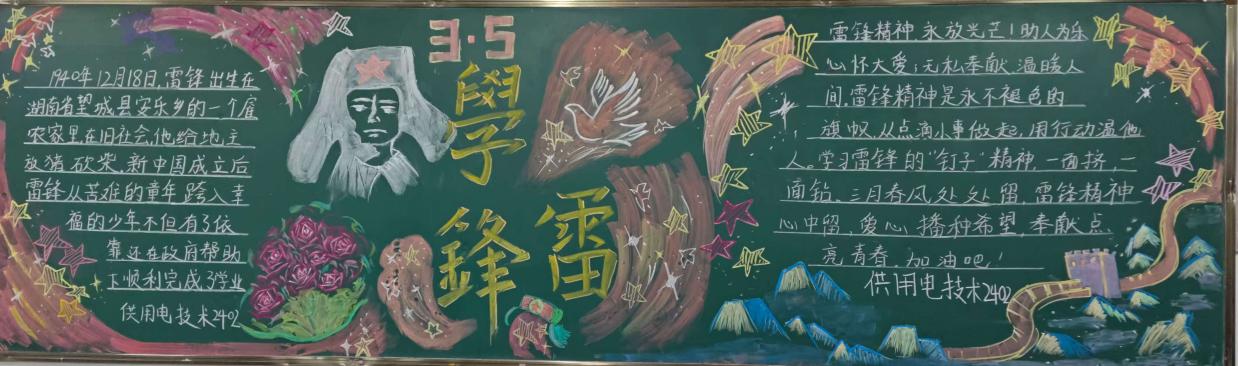 1940年12月18日,雷锋出生在
湖南省望城县安乐乡的一个雇
农家里在旧社会,他给地主
放猪砍柴,新中国成立后
雷锋从苦难的童年跨入幸
福的少年不但有了依
靠还在政府帮助
下顺利完成了学业
供用电技术2402
3·5
學
雷
鋒
雷锋精神,永放光芒!助人为乐
心怀大爱;无私奉献,温暖人
间,雷锋精神是永不褪色的
旗帜,从点滴小事做起,用行动温他
人。学习雷锋的"钉子"精神,一面挤,一
面钻。三月春风处处留,雷锋精神
心中留,爱心播种希望,奉献点
亮青春,加油吧!
供用电技术2402